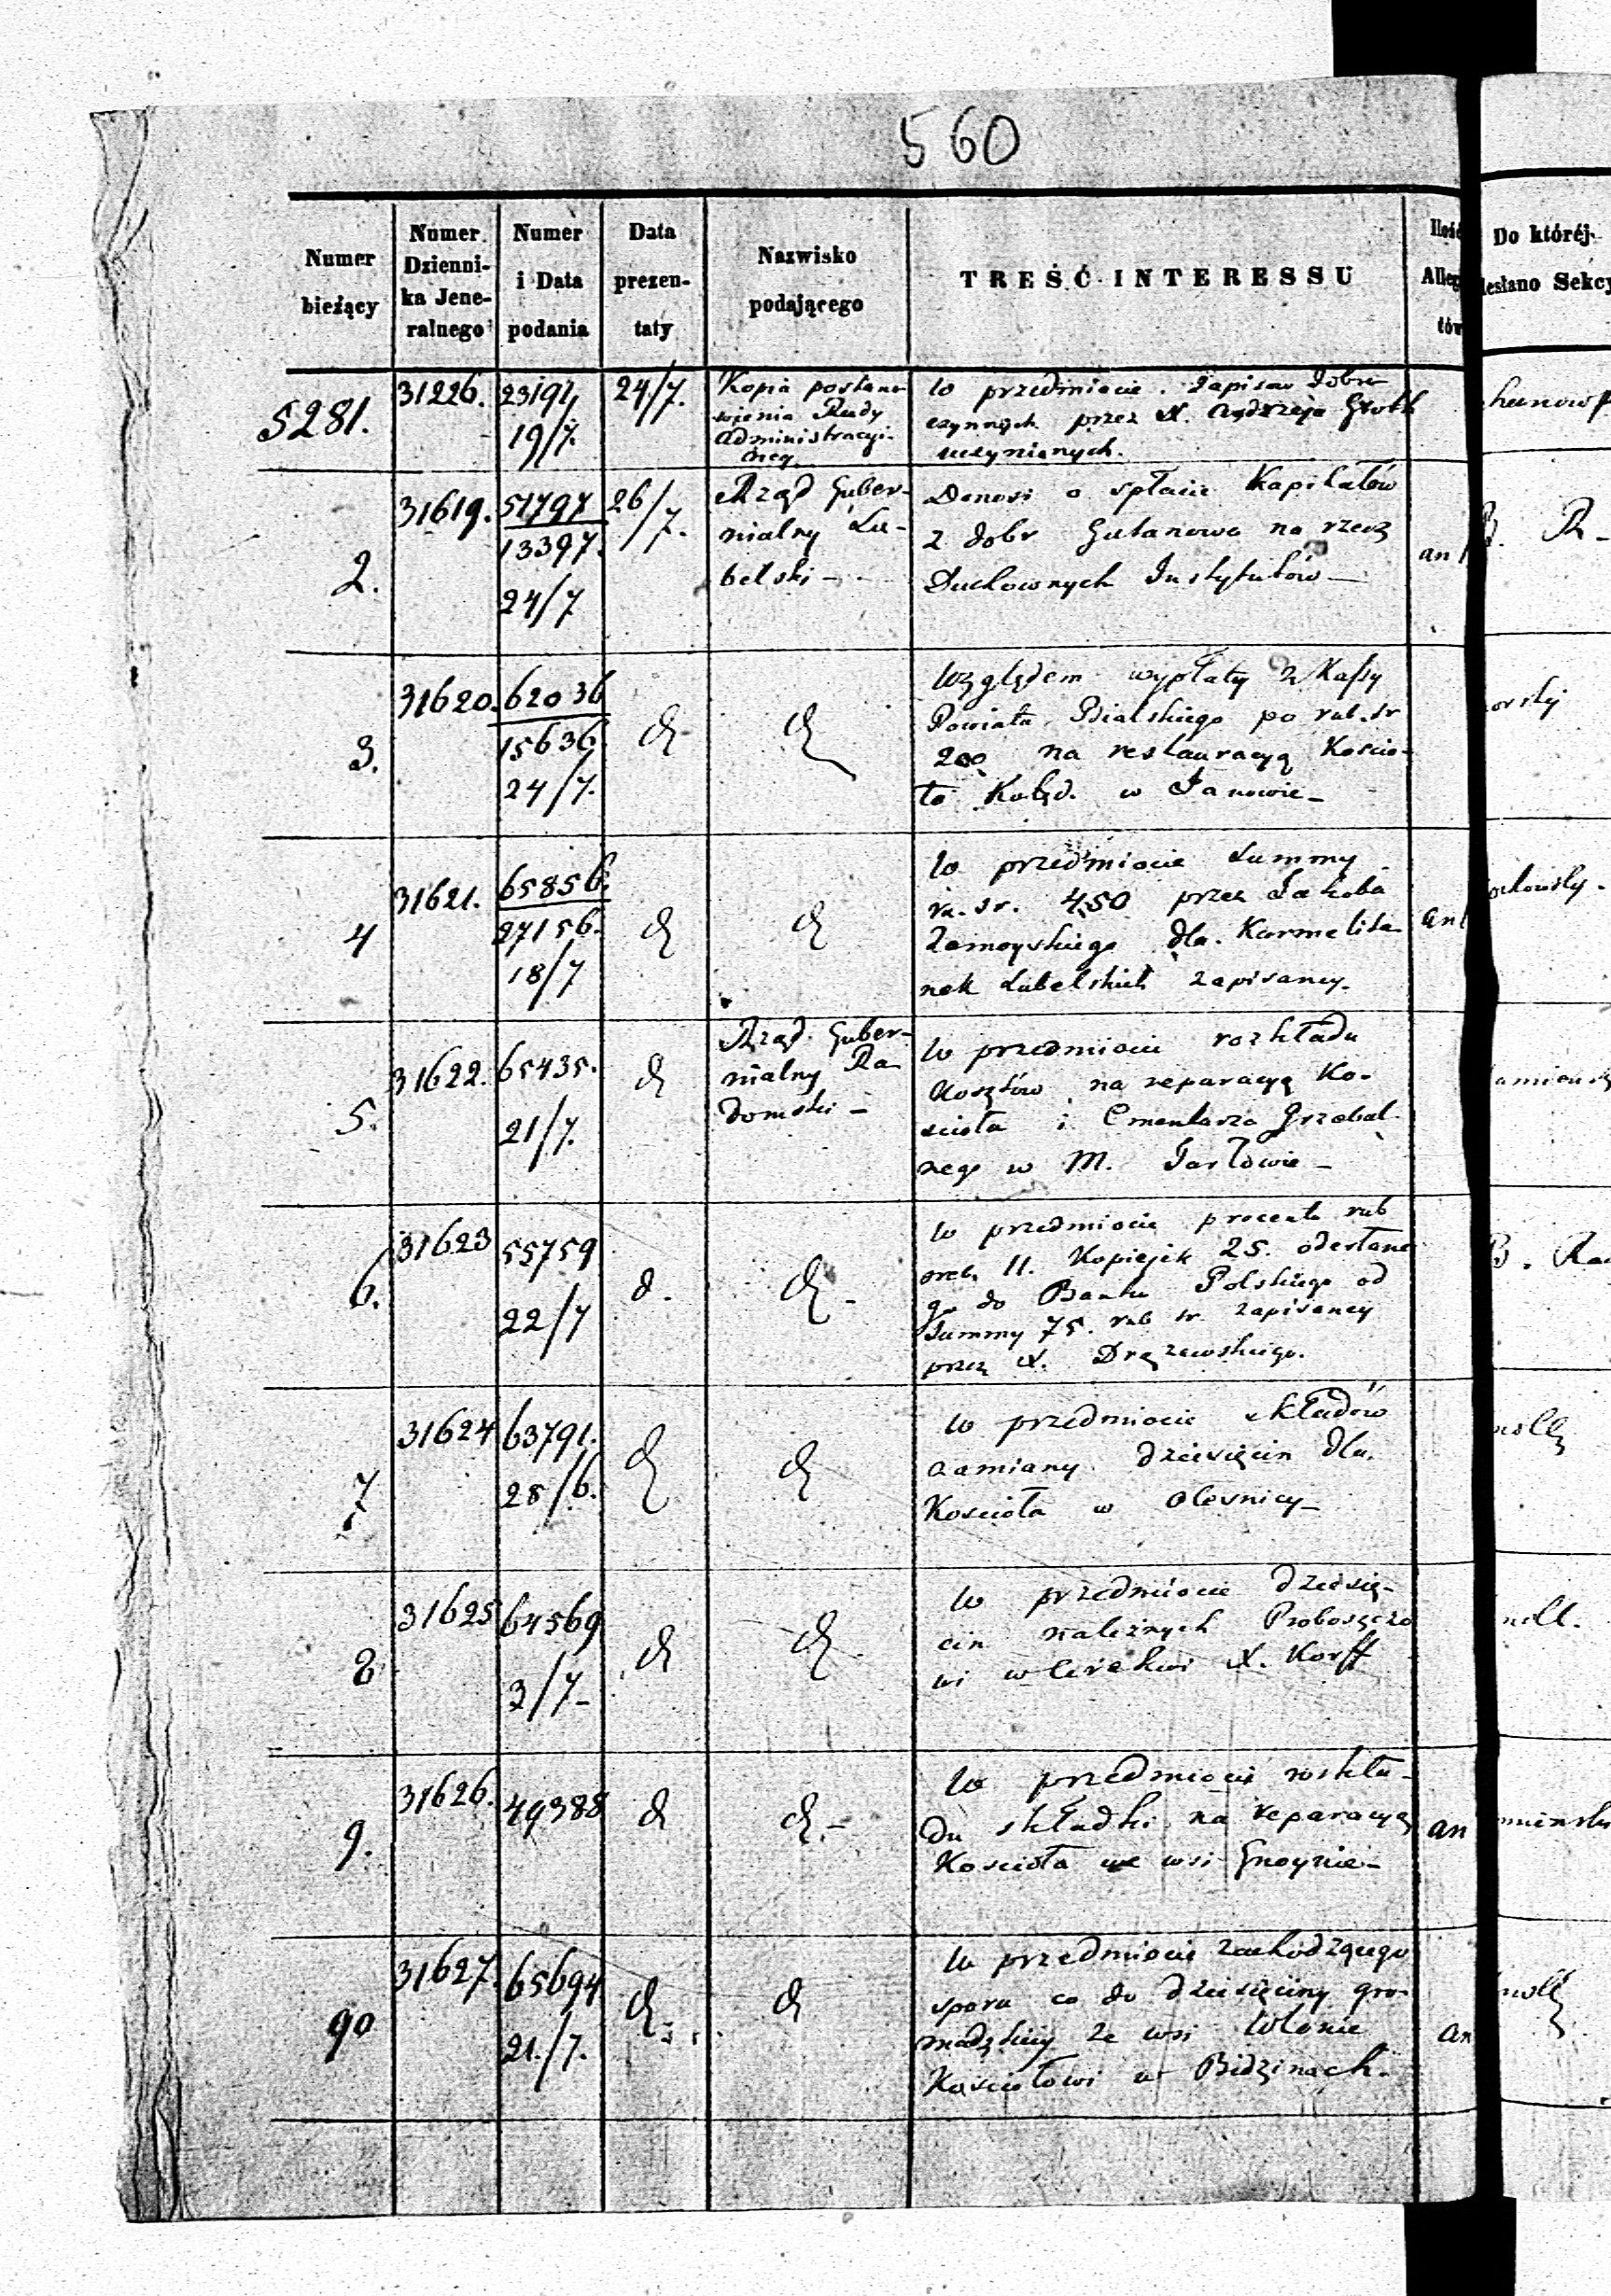 560
Numer bieżący
Numer Dzienni-ka Jene-ralnego
Numer i Data podania
Data prezen-taty
Nazwisko podającego
TREŚĆ INTERESSU
Ilość Alleg tów
Do któréj esłano Sekcy
5281.
31226.
23192
19/7.
24/7.
Kopia postano-
wienia Rady
Administracyi-
ney
w przedmiocie zapisów dobro-
czynnych przez X. Andrzeja
uczynionych.
2.
31619.
51797
13397.
24/7
26/7.
Rząd Guber-
nialny Lu-
belski -
an
Donosi o spłacie Kapitałów
z dobr Gutanowa na rzecz
Duchownych Instytutów -
3.
31620.
62036
15636.
24/7.
d
d
Względem wypłaty z Kassy
Powiatu Bialskiego po rub. sr
200 na restauracyą Koscio-
ła w Janowie -
4
31621.
65856.
27156.
18/7
d
d
w przedmiocie Summy
ru. sr. 450 przez Jakóba
Zamoyskiego dla Karmelita-
nek Lubelskich zapisaney.
an
5.
31622.
65435.
21/7.
d
Rząd Guber-
nialny Ra-
domski -
w przedmiocie rozkładu
Kosztów na reparacyą Ko-
scioła i Cmentarza Grzebal-
nego w M. Tarłowie -
6.
31623
55759
22/7
d.
d.
w przedmiocie procentu rub
sreb. 11. Kopiejek 25. odesłane
go do Banku Polskiego od
Summy 75. rub sr. zapisaney
przez X. Drązewskiego.
7
31624
63791.
28/6.
d
d
w przedmiocie układów
zamiany dziesięcin dla
Kościoła w Olesnicy -
8
31625
64569
3/7 -
d
d
w przedmiocie dziesię-
cin należnych Proboszczo
wi w Cerekwi X. Korff
9.
31626.
49388
d
d. -
w przedmiocie rozkła-
du składki na reparacyą
Kościoła we wsi Gnoynie -
an
90
31627.
65694
21./7.
d
d
w przedmiocie zachodzącego
sporu co do dziesięciny gro-
madzkiey ze wsi Wlonie
Kościołowi w Bidzinach.
an